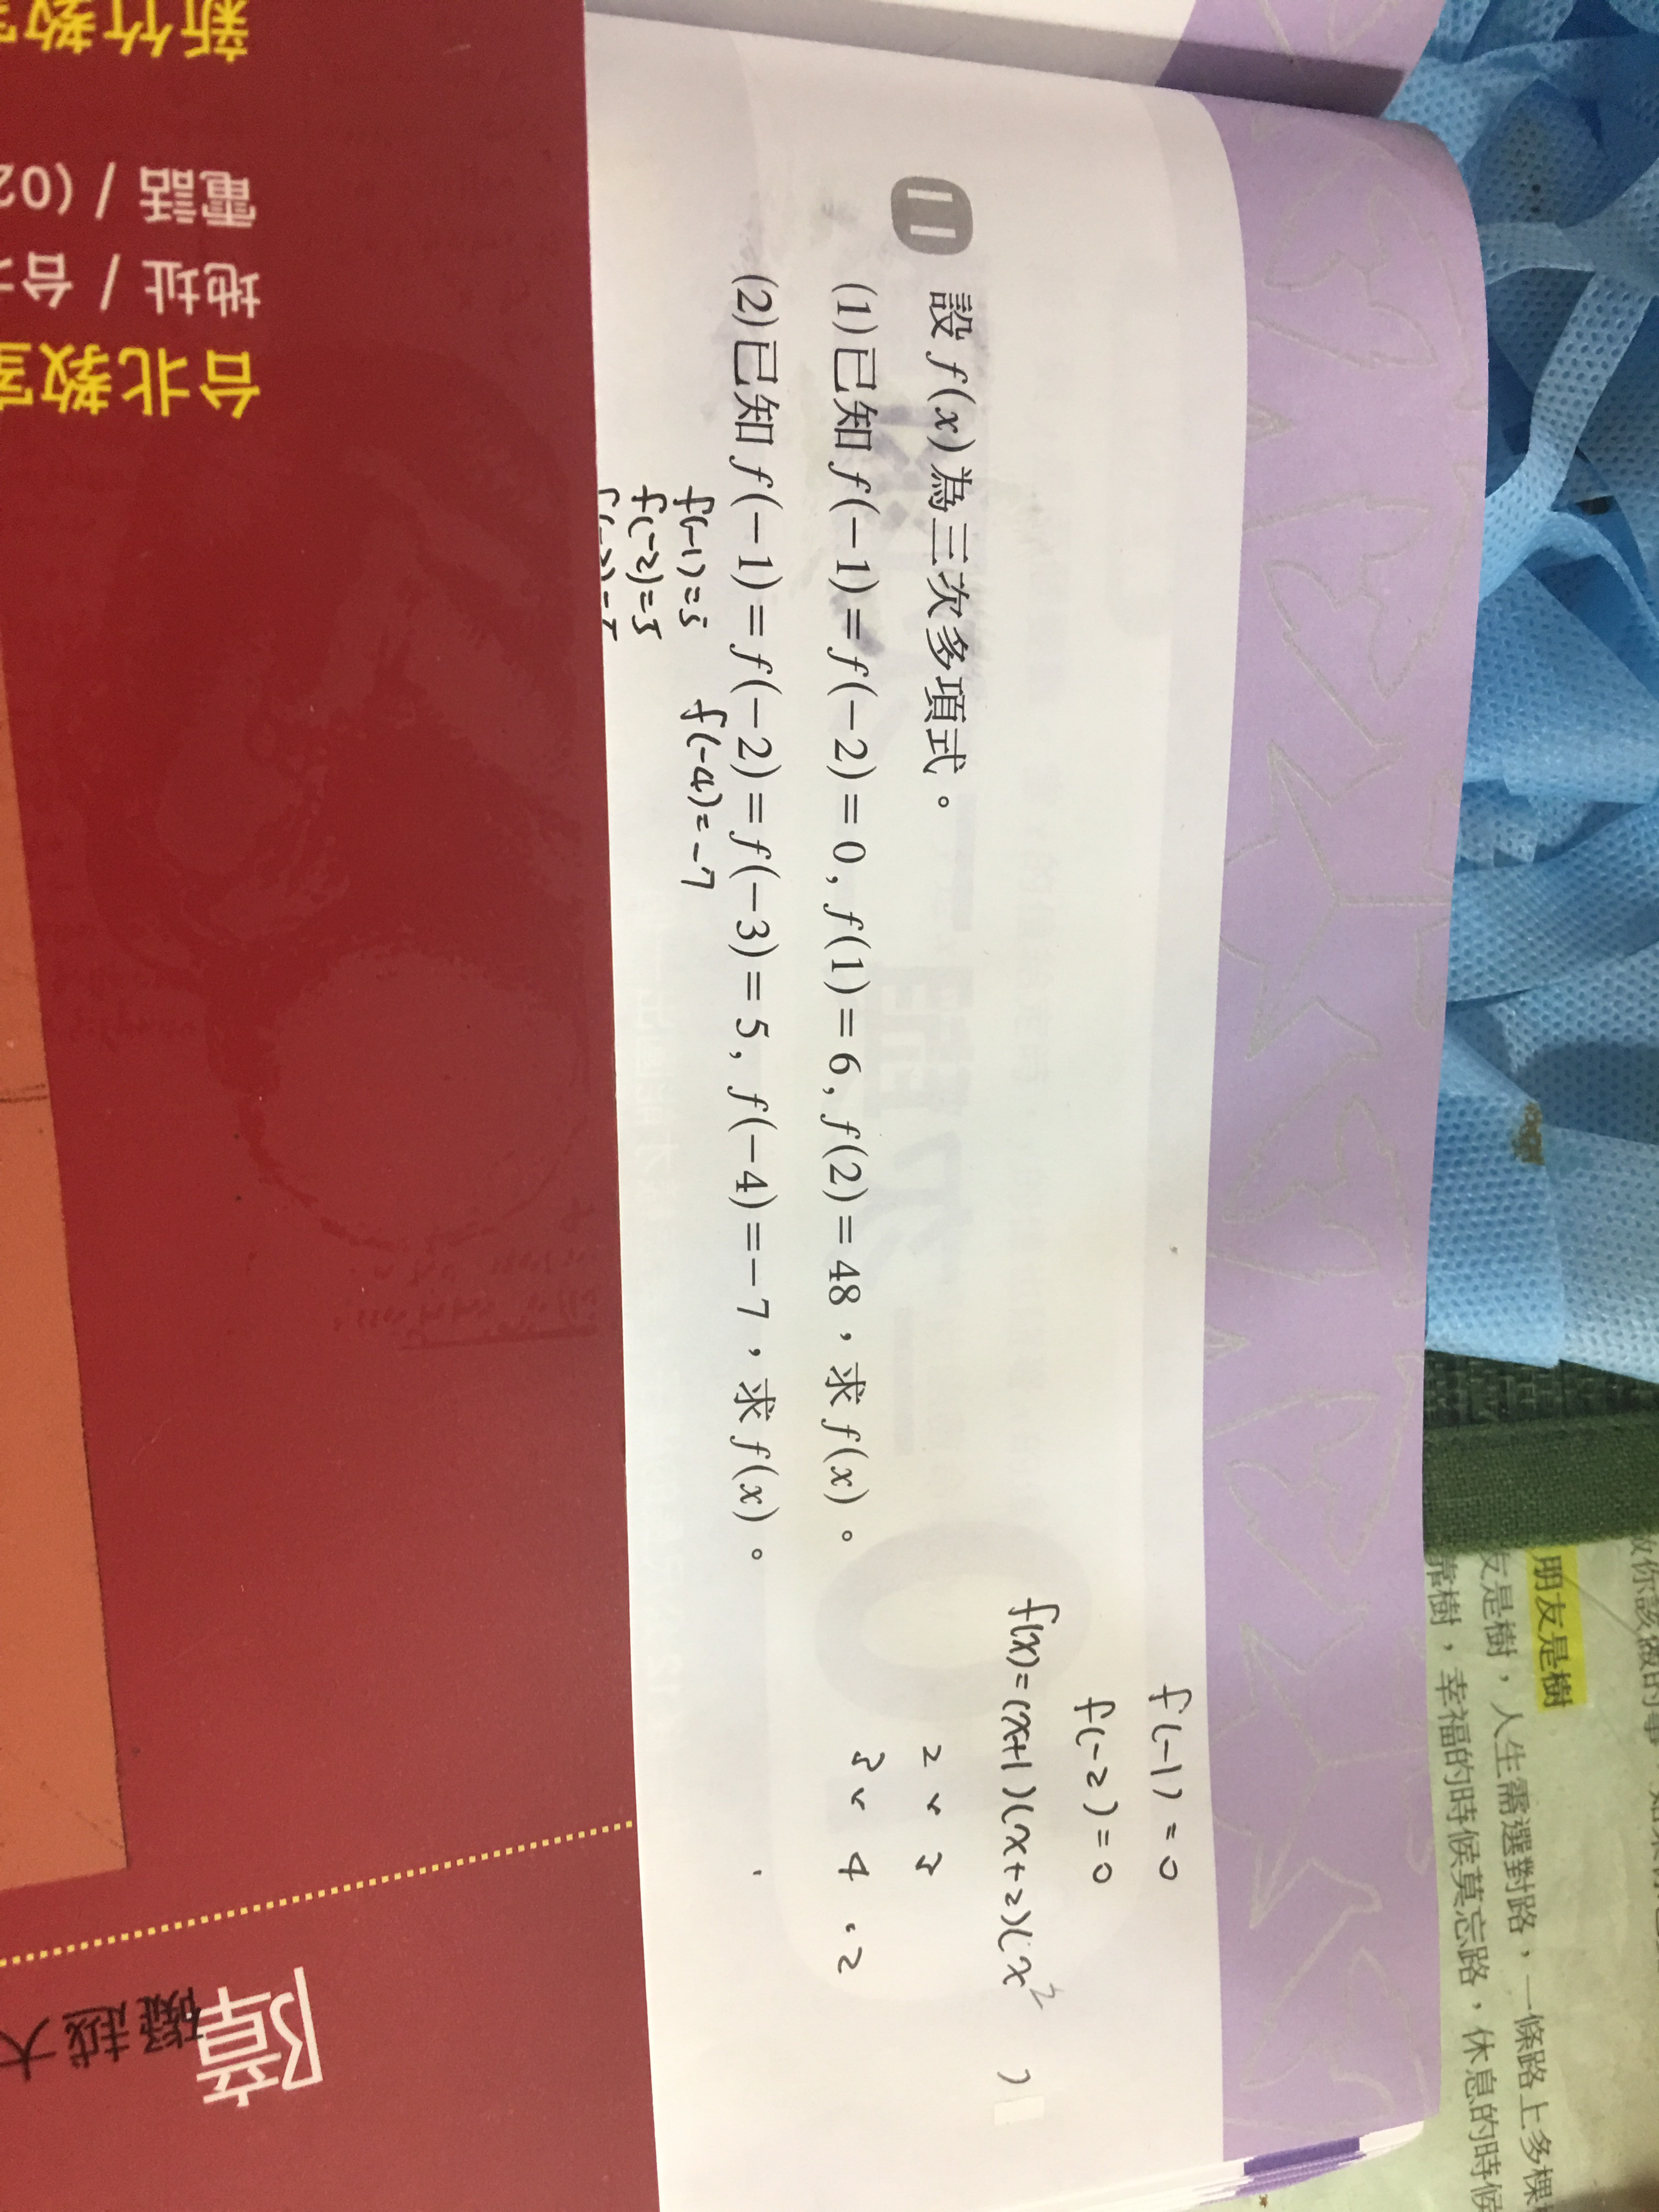 11 設 f(x) 為三次多項式。
(1)已知 f(-1)=f(-2)=0, f(1)=6, f(2)=48，求 f(x)。
(2)已知 f(-1)=f(-2)=f(-3)=5, f(-4)=-7，求 f(x)。
f(-1)=0
f(-2)=0
f(x)=(x+1)(x+2)(x² )
2 × 3
3 × 4 · 2
f(-1)=5 f(-4)=-7
f(-2)=5
朋友是樹
友是樹，人生需選對路，一條路上多棵
靠樹，幸福的時候莫忘路，休息的時候
台北教室
地址 / 台北
電話 / (02
新竹教室
障
礙越大